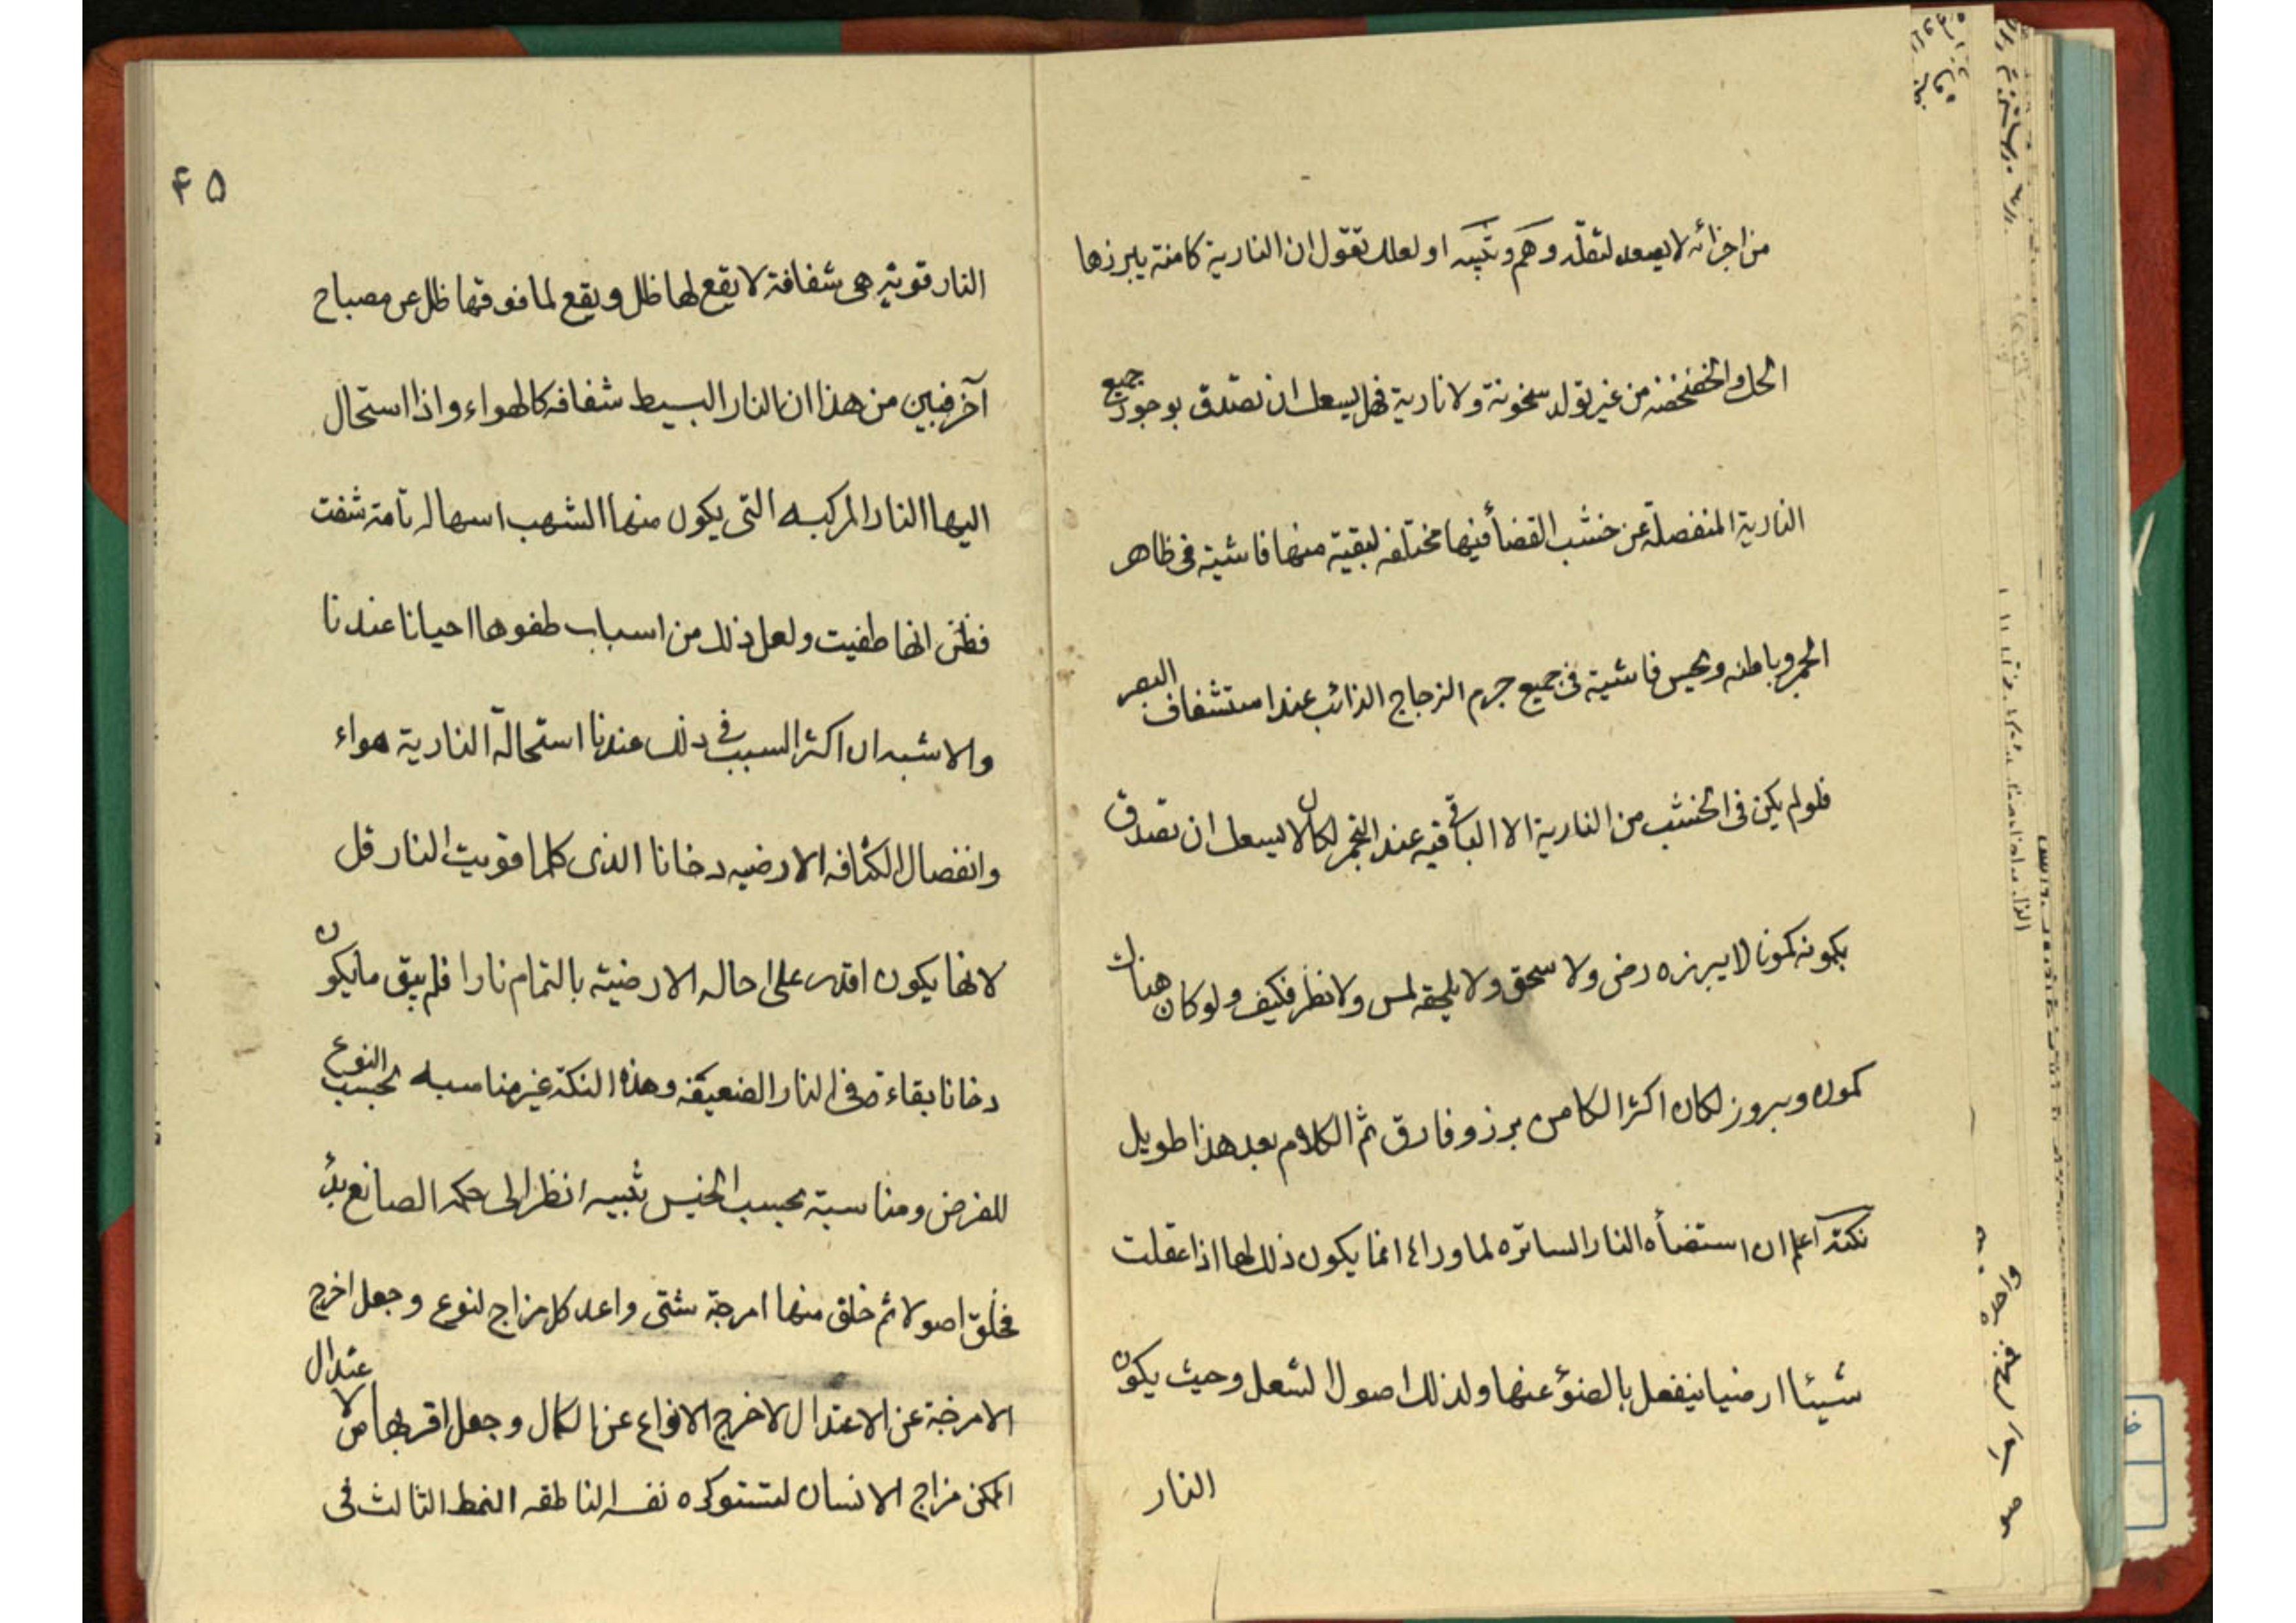 من اجزائه لا يصعد لثقله وهم وتنبيه او لعلك تقول ان النارية كامنة يبرزها
الحك والخضخضه من غير تولد سخونة ولا نارية فهل يسعك ان تصدق بوجود جميع
النارية المنفصلة عن خشب الغضأ فيها مختلفه لبقية منها فاشية فى ظاهر
الجمر وباطنه ويحس فاشية فى جميع جرم الزجاج الذائب عند استشفاف البصر
فلو لم يكن فى الخشب من النارية الا الباقيه عند التجمر لكان لا يسعك ان تصدق
بكونه كمونا لا يبرزه رض ولا سحق ولا يلحقه لمس ولا نظر فكيف ولو كان هناك
كمون وبروز لكان اكثر الكامن برز وفارق ثم الكلام بعد هذا طويل
نكتة اعلم ان استضأه النار الساتره لما وراءها انما يكون ذلك لها اذا علقت
شيئا ارضيا ينفعل بالضؤ عنها ولذلك اصول الشعل وحيث يكون
النار
۴۵
النار قويّة هى شفافة لا يقع لها ظل ويقع لما فوقها ظل عن مصباح
آخر فبين من هذا ان النار البسيط شفافه كالهواء واذا استحال
اليها النار المركبه التى يكون منها الشهب اسهاله تامة شفت
فظن انها طفيت ولعل ذلك من اسباب طفوها احيانا عندنا
والاشبه ان اكثر السبب فى ذلك عندنا استحالة النارية هواء
وانفصال الكثافه الارضيه دخانا الذى كلما قويت النار قل
لانها يكون اقدر على احاله الارضيّة بالتمام نارا فلم يبق ما يكون
دخانا بقاءه فى النار الضعيفه وهذه النكتة غير مناسبه بحسب النوع
للغرض ومناسبة بحسب الجنس تنبيه انظر الى حكمه الصانع بدأ
فخلق اصولا ثم خلق منها امزجة شتى واعد كل مزاج لنوع وجعل اخرج
الامزجة عن الاعتدال لاخرج الانواع عن الكمال وجعل اقربها من الاعتدال
الممكن مزاج الانسان لتستوكره نفسه الناطقه النمط الثالث فى